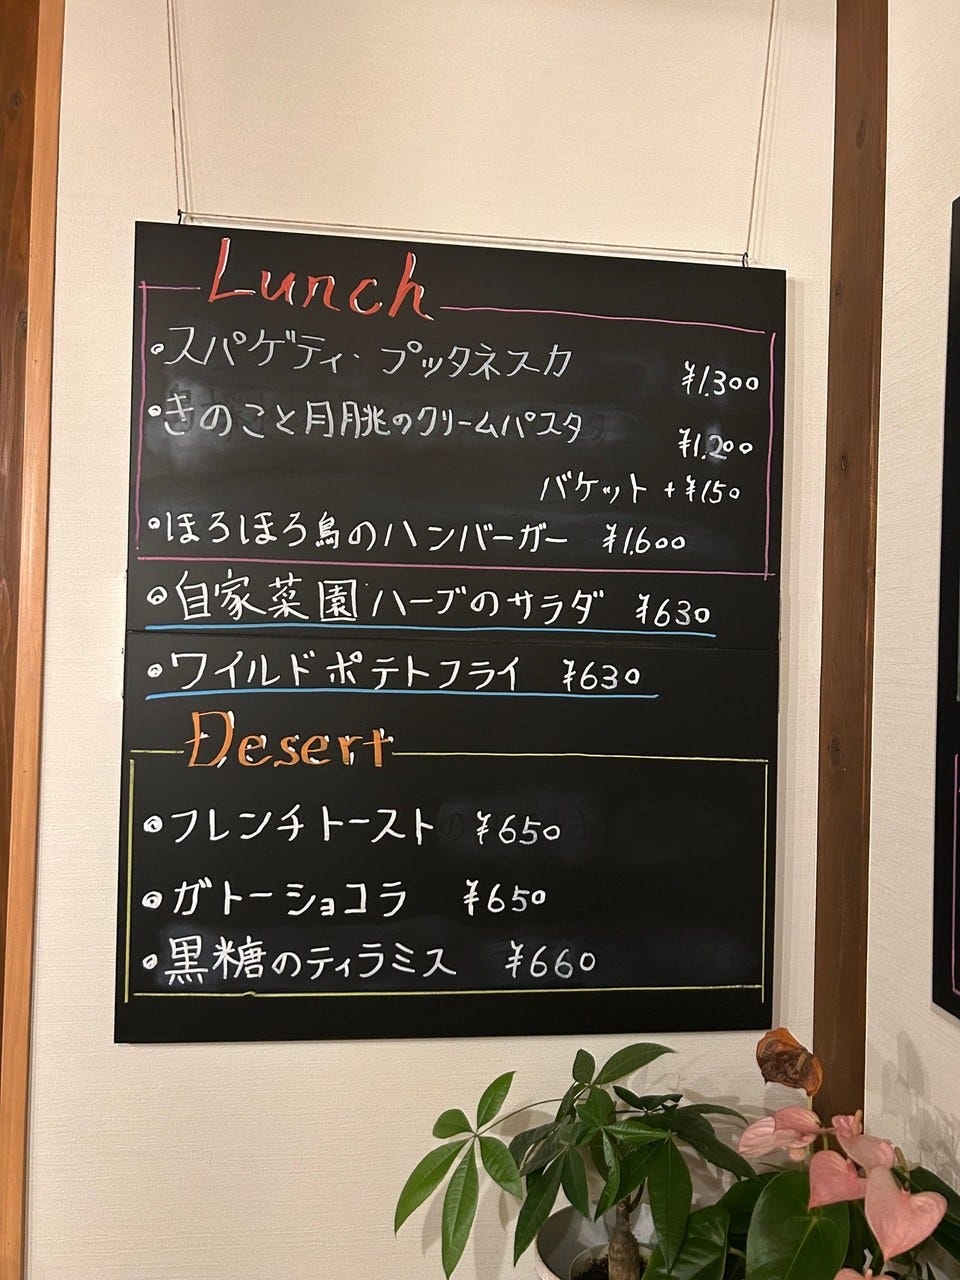 Lunch
・スパゲティ・プッタネスカ ¥1.300
・きのこと月眺のクリームパスタ ¥1.200
バケット +¥150
・ほろほろ鳥のハンバーガー ¥1.600
・自家菜園ハーブのサラダ ¥630
・ワイルドポテトフライ ¥630
Desert
・フレンチトースト ¥650
・ガトーショコラ ¥650
・黒糖のティラミス ¥660